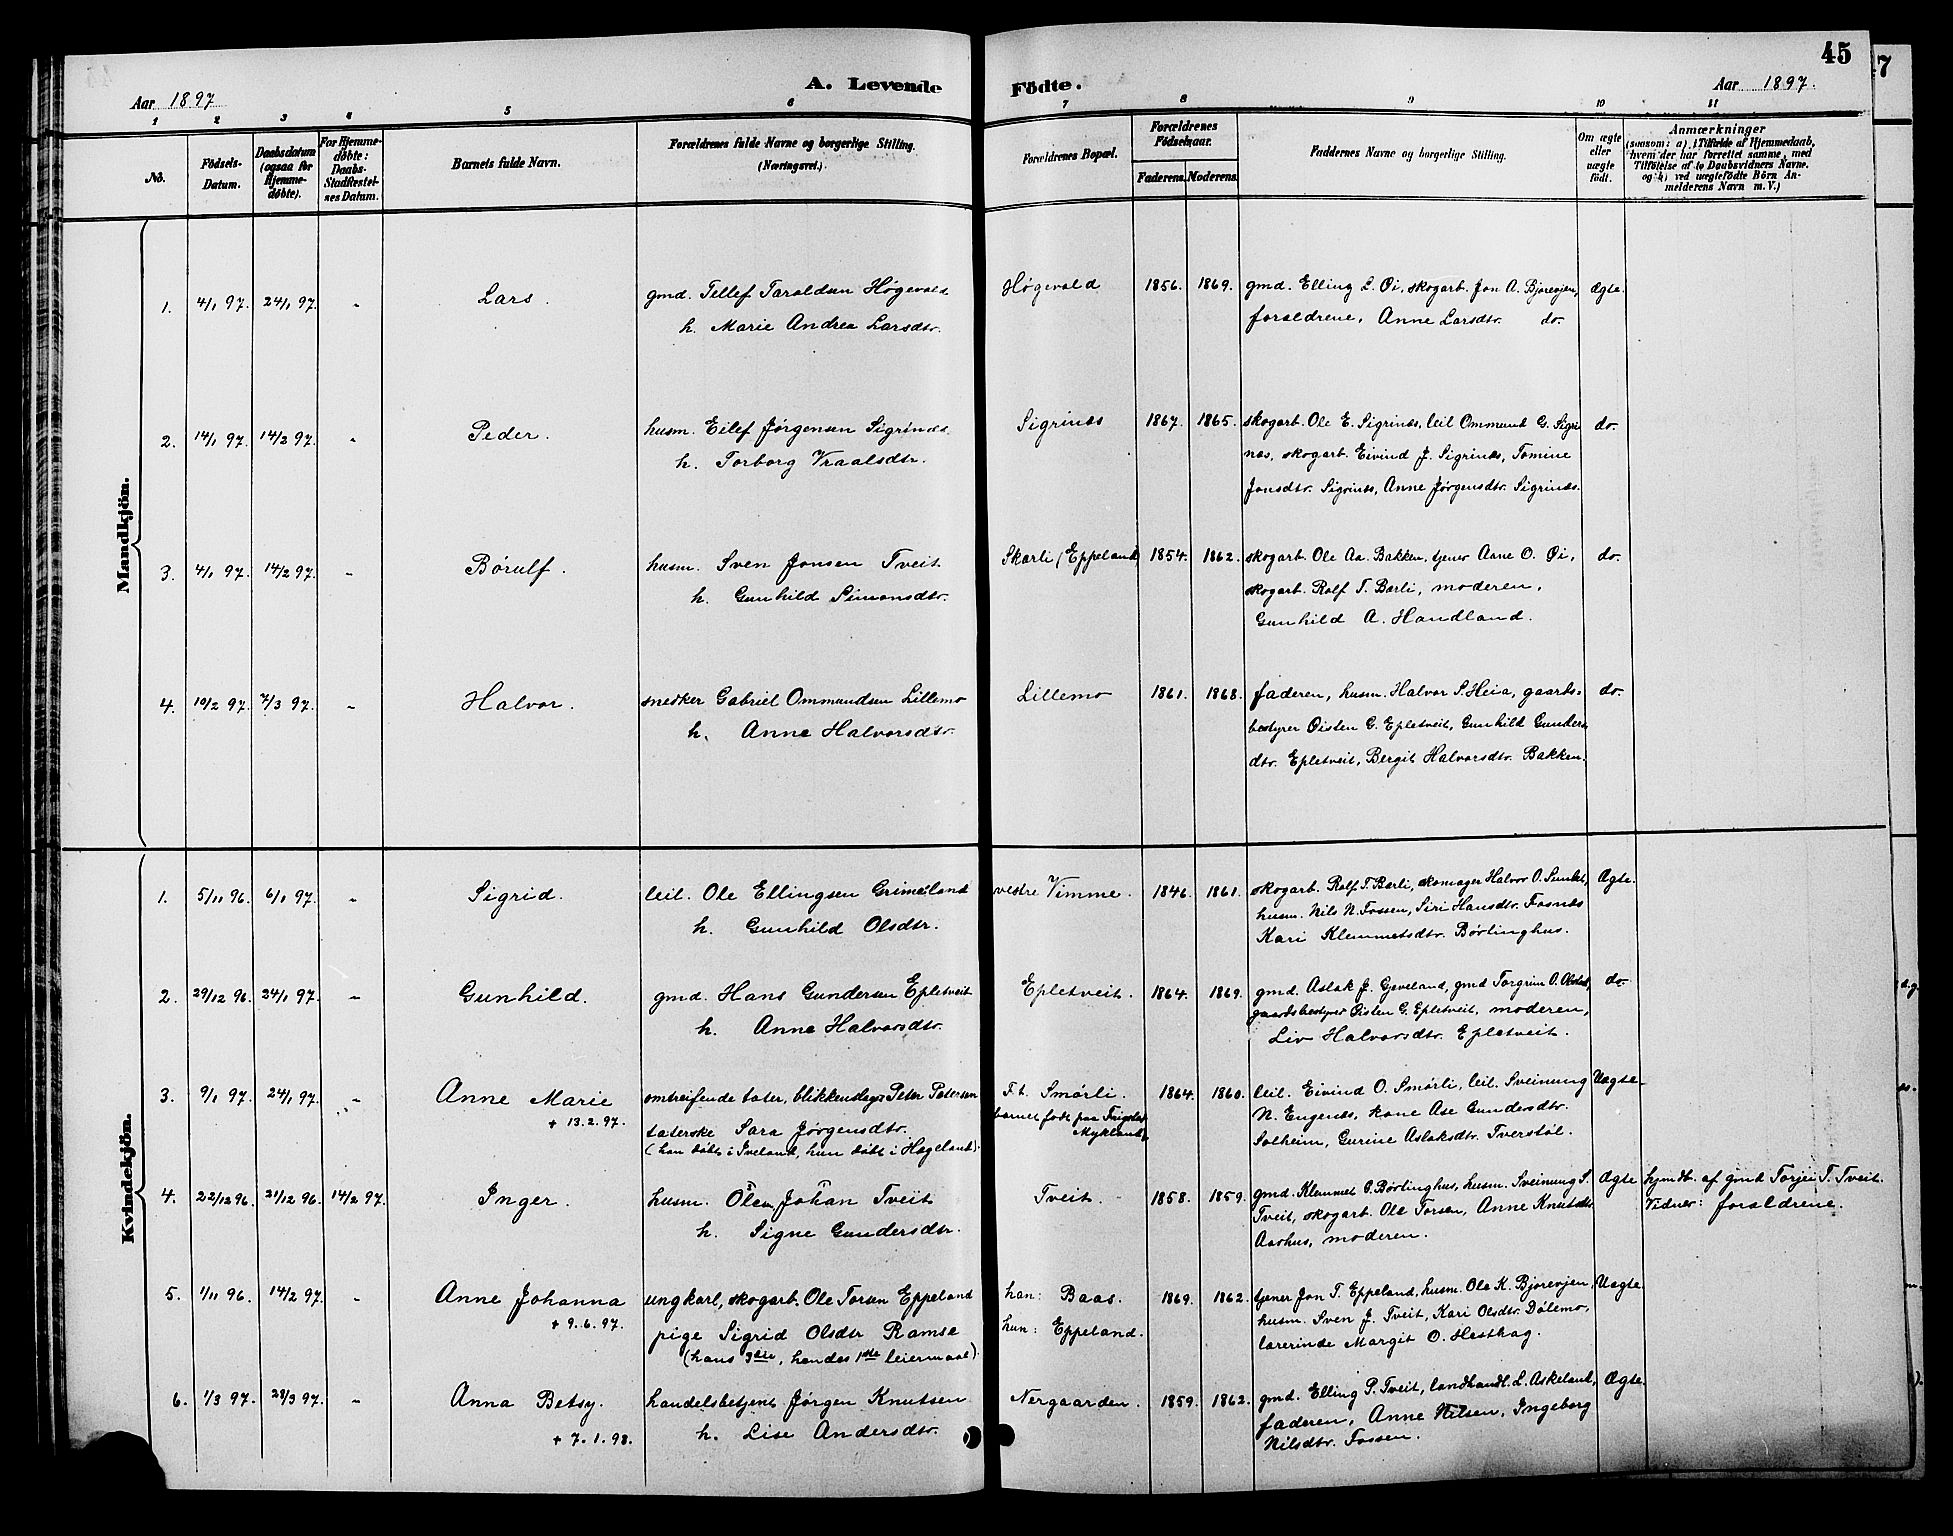 45
A. Levende Födte.
Aar 1897
Aar 1897.
1 2 3 4 5 6 7 8 9 10 11
No.
Födsels-Datum.
Daabsdatum (ogsaa for Hjemme-døbte).
For Hjemme-døbte: Daabs-Stadfæstel-ses Datum.
Barnets fulde Navn.
Forældrenes fulde Navne og borgerlige Stilling. (Næringsvei.)
Forældrenes Bopæl.
Forældrenes Födselsaar.
Faderens. Moderens.
Faddernes Navne og borgerlige Stilling.
Om ægte eller uægte födt.
Anmærkninger
(saasom: a) i Tilfælde af Hjemmedaab,
hvem der har forrettet samme, med
Tilföielse af to Daabsvidners Navne,
og b) ved uægtefödte Börn An-
melderens Navn m. V.)
Mandkjön.
1. 4/1 97. 24/1 97. - Lars. gmd. Tellef Taraldsen Høgevold Høgevold 1856. 1869. gmd. Elling L. Øi, skogarb. Jon A. Bjorevjen, Ægte.
h. Marie Andrea Larsdtr. foraldrene, Anne Larsdtr. do.
2. 14/1 97. 14/2 97. - Peder. husm. Eilef Jørgensen Sigrinæs. Sigrinæs 1867. 1865. skogarb. Ole E. Sigrinæs, leil Ommund G. Sigri do.
h. Torborg Vraalsdtr. næs, skogarb. Eivind J. Sigrinæs, Tomine
Jonsdtr. Sigrinæs, Anne Jørgensdtr. Sigrinæs.
3. 4/1 97. 14/2 97. - Børulf. husm. Sven Jonsen Tveit Skarli (Eppeland) 1854. 1862. skogarb. Ole Aa. Bakken, tjener Anne O. Øi, do.
h. Gunhild Simonsdtr. skogarb. Rolf T. Bærli, moderen,
Gunhild A. Handland.
4. 10/2 97. 7/3 97. - Halvor. snedker Gabriel Ommundsen Lillemo Lillemo 1861. 1868. faderen, husm. Halvor S. Heia, gaards- do.
h. Anne Halvorsdtr. bestyrer Øisten G. Epletveit, Gunhild Gunders
dtr. Epletveit, Bergit Halvorsdtr. Bakken.
Kvindekjön.
1. 5/11 96. 6/1 97. - Sigrid. leil. Ole Ellingsen Grimeland vestre Vimme. 1846. 1861. skogarb. Rolf T. Bærli, skomager Halvor O. Ægte.
h. Gunhild Olsdtr. husm. Nils N. Fossen, Siri Hansdtr. Fosnæs
Kari Klemmetsdtr. Børlinghus.
2. 29/12 96. 24/1 97. - Gunhild. gmd. Hans Gundersen Epletveit Epletveit. 1864. 1869. gmd. Aslak J. Gjeveland, gmd Torgrim O. do.
h. Anne Halvorsdtr. gaardsbestyrer Øisten G. Epletveit, moderen,
Liv Halvorsdtr. Epletveit.
3. 9/1 97. 24/1 97. - Anne Marie omtreifende tater, blikkenslager Peter Petersen F.t. Smørli. 1864. 1860. leil. Eivind O. Smørli, leil. Sveinung Uægte.
+ 13.2.97. taterske Sara Jørgensdtr. barnet født paa Mykland N. Engenæs, kone Ase Gundersdtr.
(han døbt i Iveland, hun døbt i Hægeland). Solheim, Gurine Aslaksdtr. Tverstøl.
4. 22/12 96. 21/12 96. 14/2 97. Inger. husm. Olen Johan Tveit Tveit. 1858. 1859. gmd. Klemmet O. Børlinghus, husm. Sveinung S. Ægte hjemdt. af gmd Torjei T. Tveit.
h. Signe Gundersdtr. Tveit, skogarb. Ole Torsen, Anne Knutsdtr Vidner: foraldrene.
Aarhus, moderen.
5. 1/11 96. 14/2 97. - Anne Johanna ungkarl, skogarb. Ole Torsen Eppeland han: Baas. 1869. 1862. tjener Jon T. Eppeland, husm. Ole K. Bjorevjen, Uægte.
+ 9.6.97. pige Sigrid Olsdtr Ramse hun: Eppeland. husm. Sven J. Tveit, Kari Olsdtr. Dølemo,
(hans 3die, hendes 1ste leiermaal) lærerinde Margit O. Hesthag.
6. 1/3 97. 28/3 97. - Anna Betsy. handelsbetjent Jørgen Knutsen Nergaarden. 1859. 1862. gmd. Elling P. Tveit, landhandl. L. Askeland, Ægte.
+ 7.1.98. h. Lise Andersdtr. faderen, Anne Nilsen, Ingeborg
Nilsdtr. Fossen.